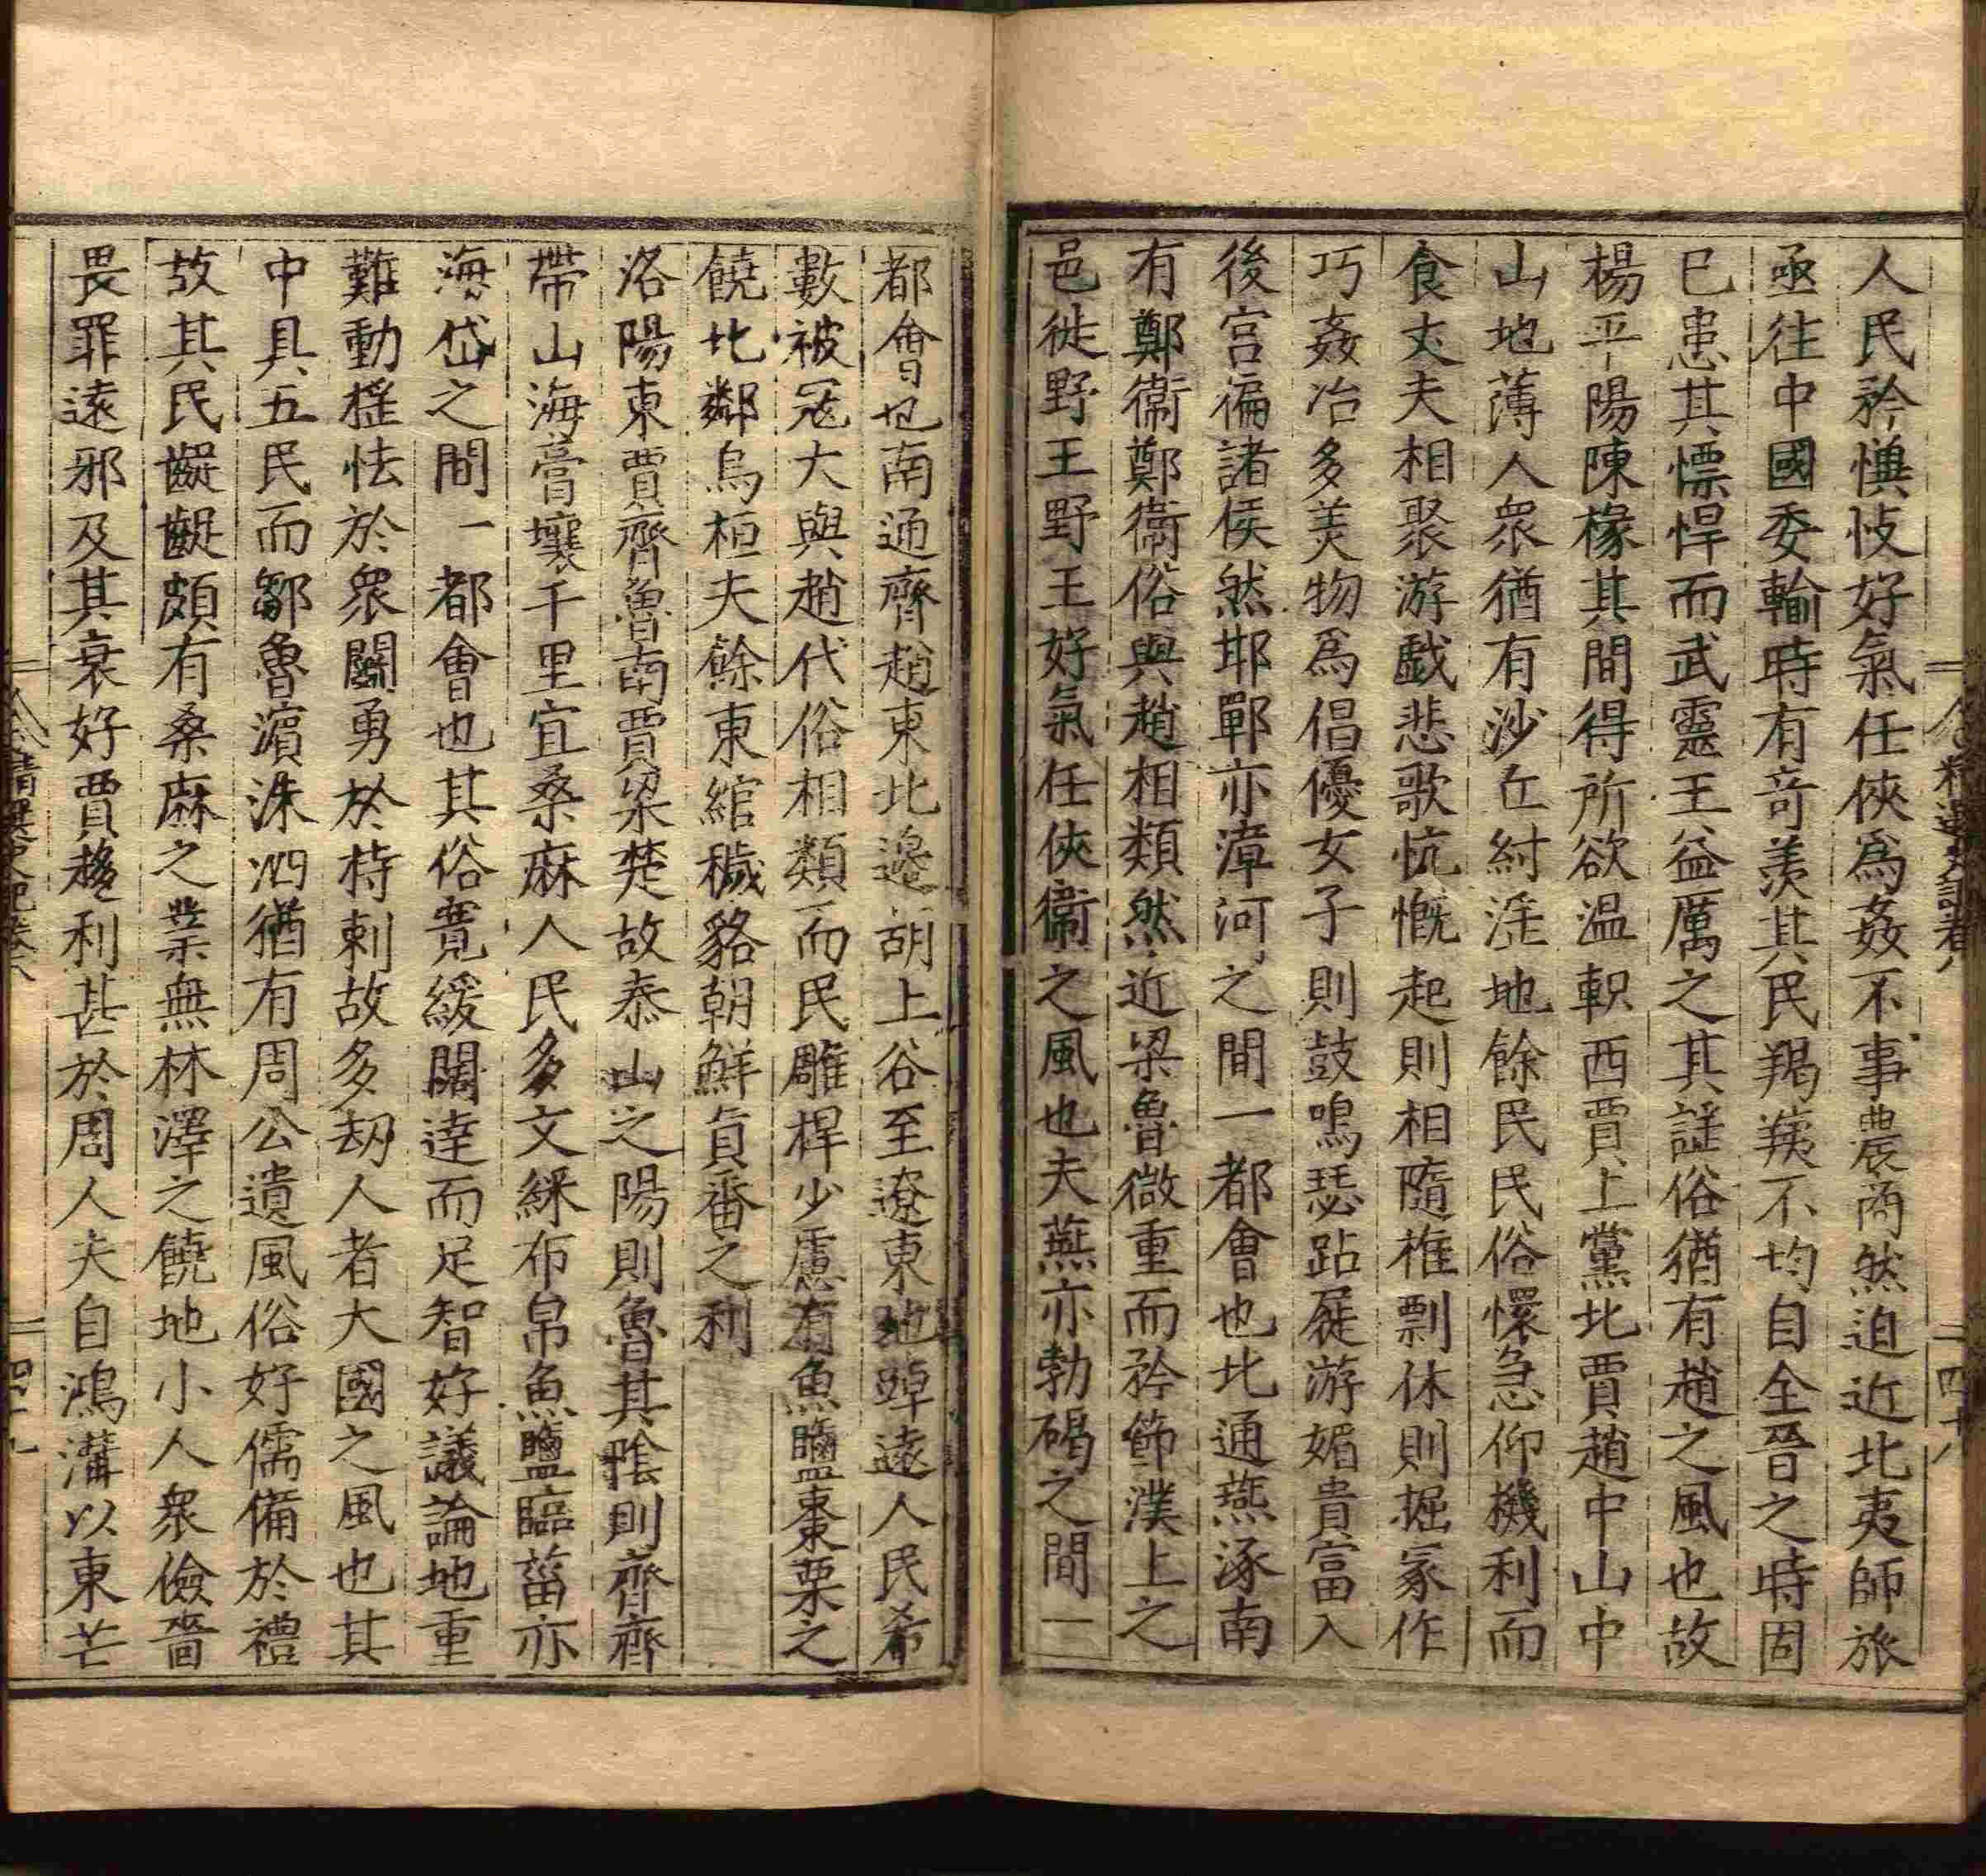 人民矜懻忮好氣任俠爲姦不事農商然迫近北夷師旅
亟徃中國委輸時有竒羡其民羯羠不均自全晉之時固
已患其慓悍而武靈王益厲之其謡俗猶有趙之風也故
楊平陽陳椽其間得所欲温軹西賈上黨北賈趙中山中
山地薄人衆猶有沙丘紂淫地餘民民俗懁急仰機利而
食丈夫相聚游戯悲歌忼慨起則相隨椎剽休則掘冢作
巧姦冶多美物爲倡優女子則鼓鳴瑟跕屣游媚貴富入
後宫徧諸侯然邯鄲亦漳河之間一都會也北通燕涿南
有鄭衞鄭衞俗與趙相類然近梁魯微重而矜節濮上之
邑徙野王野王好氣任俠衞之風也夫燕亦勃碣之間一
都會也南通齊趙東北邊胡上谷至遼東地踔遠人民希
數被冦大與趙代俗相類而民雕桿少慮有魚鹽棗栗之
饒北鄰烏桓夫餘東綰穢貉朝鮮眞番之利
洛陽東賈齊魯南賈梁楚故泰山之陽則魯其隂則齊齊
帶山海膏壤千里宜桑麻人民多文綵布帛魚鹽臨菑亦
海岱之間一都會也其俗寛緩闊逹而足智好議論地重
難動揺怯於衆鬭勇於持刺故多刼人者大國之風也其
中具五民而鄒魯濵洙泗猶有周公遺風俗好儒備於禮
故其民齪齪頗有桑麻之業無林澤之饒地小人衆儉嗇
畏罪遠邪及其衰好賈趍利甚於周人夫自鴻溝以東芒